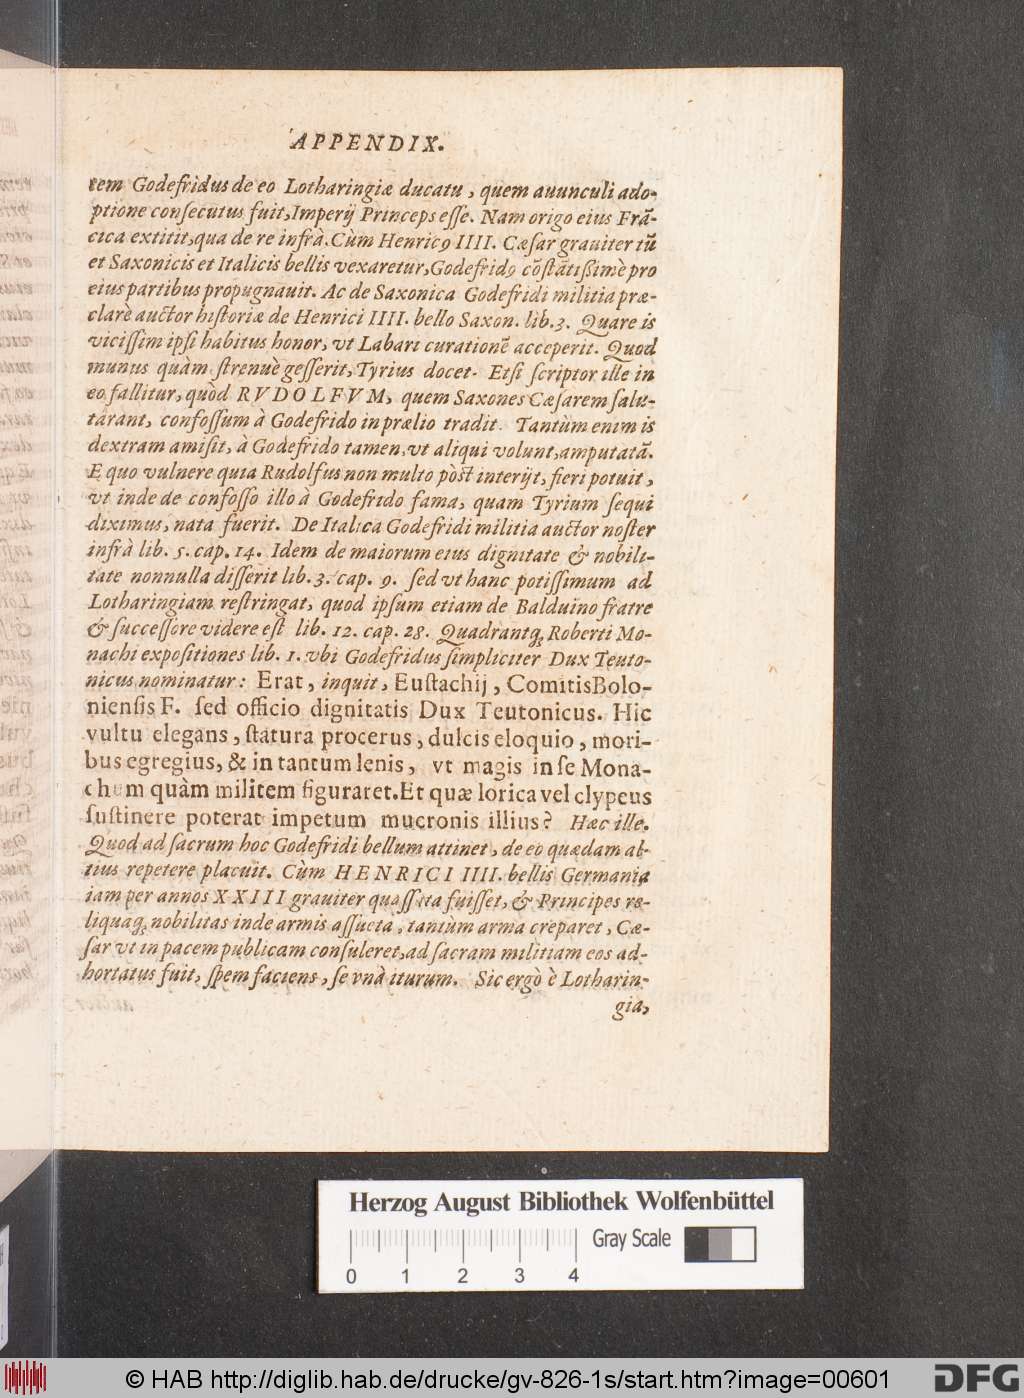 APPENDIX.
tem Godefridus de eo Lotharingiæ ducatu, quem auunculi ado-
ptione consecutus fuit, Imperij Princeps esse. Nam origo eius Frã-
cica extitit, qua de re infrà. Cùm Henricꝰ IIII. Cæsar grauiter tũ
et Saxonicis et Italicis bellis vexaretur, Godefridꝰ cõstãtißimè pro
eius partibus propugnauit. Ac de Saxonica Godefridi militia præ-
clarè auctor historiæ de Henrici IIII. bello Saxon. lib. 3. Quare is
vicissim ipsi habitus honor, vt Labari curationẽ acceperit. Quod
munus quàm strenuè gesserit, Tyrius docet. Etsi scriptor ille in
eo fallitur, quòd RVDOLFVM, quem Saxones Cæsarem salu-
tarant, confossum à Godefrido in prælio tradit. Tantùm enim is
dextram amisit, à Godefrido tamen, vt aliqui volunt, amputatã.
E quo vulnere quia Rudolfus non multo pòst interijt, fieri potuit,
vt inde de confosso illo à Godefrido fama, quam Tyrium sequi
diximus, nata fuerit. De Italica Godefridi militia auctor noster
infrà lib. 5. cap. 14. Idem de maiorum eius dignitate & nobili-
tate nonnulla disserit lib. 3. cap. 9. sed vt hanc potissimum ad
Lotharingiam restringat, quod ipsum etiam de Balduino fratre
& successore videre est lib. 12. cap. 28. Quadrantq; Roberti Mo-
nachi expositiones lib. 1. vbi Godefridus simpliciter Dux Teuto-
nicus nominatur: Erat, inquit, Eustachij, Comitis Bolo-
niensis F. sed officio dignitatis Dux Teutonicus. Hic
vultu elegans, statura procerus, dulcis eloquio, mori-
bus egregius, & in tantum lenis, vt magis in se Mona-
chum quàm militem figuraret. Et quæ lorica vel clypeus
sustinere poterat impetum mucronis illius? Hæc ille.
Quod ad sacrum hoc Godefridi bellum attinet, de eo quædam al-
tius repetere placuit. Cùm HENRICI IIII. bellis Germania
iam per annos XXIII grauiter quassata fuisset, & Principes re-
liquaq; nobilitas inde armis assueta, tantùm arma creparet, Cæ-
sar vt in pacem publicam consuleret, ad sacram militiam eos ad-
hortatus fuit, spem faciens, se vnà iturum. Sic ergò è Lotharin-
gia,
Herzog August Bibliothek Wolfenbüttel
Gray Scale
0 1 2 3 4
© HAB http://diglib.hab.de/drucke/gv-826-1s/start.htm?image=00601
DFG